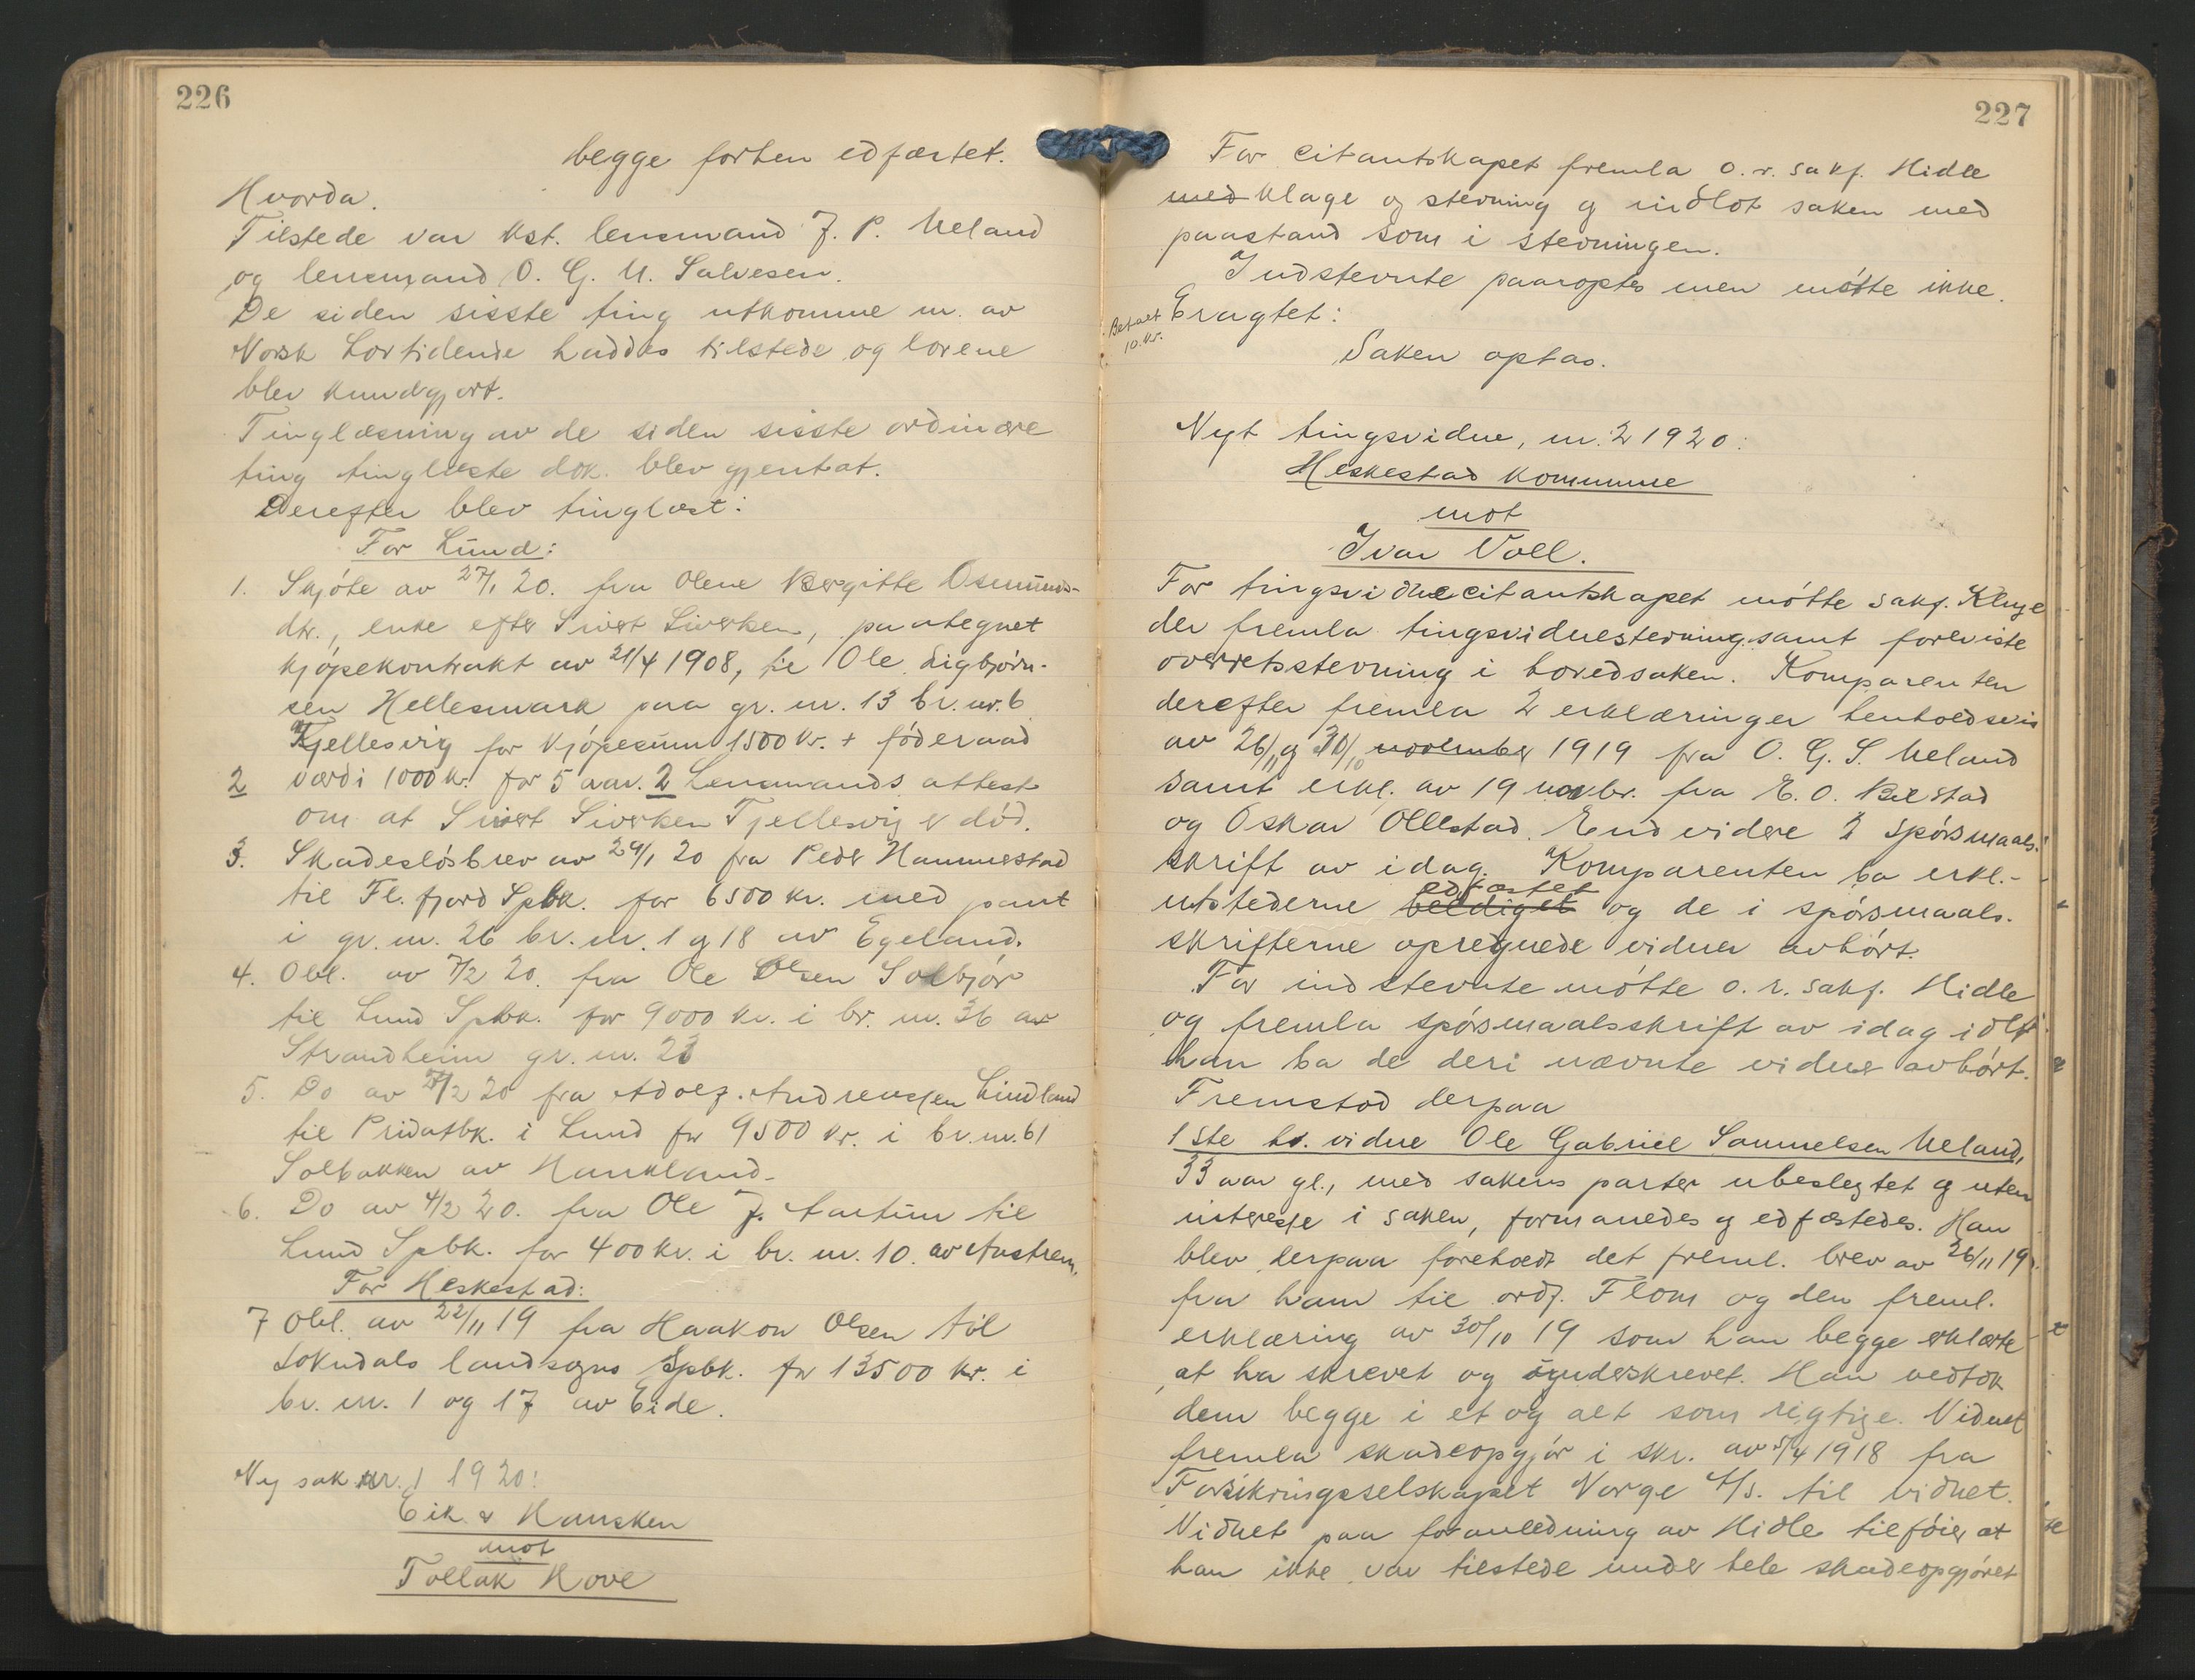 226
begge forhen edfæstet.
Hvorda.
Tilstede var kst. lensmand J. P. Ueland
og lensmand O. G. U. Salvesen.
De siden sisste ting utkomne nr. av
Norsk Lovtidende haddes tilstede og lovene
blev kundgjort.
Tinglæsning av de siden sisste ordinære
ting tinglæste dok. blev gjentat.
Derefter blev tinglæst:
For Lund:
1. Skjøte av 27/1 20. fra Olene Bergitte Osmunds-
dtr., enke efter Sivert Siversen, paategnet
kjøpekontrakt av 21/4 1908, til Ole Sigbjørn-
sen Hellesmark paa gr. nr. 13 br. nr. 6
Kjellesvig for kjøpesum 1500 kr. + føderaad
2 værdi 1000 kr. for 5 aar. 2 Lensmands attest
om at Sivert Siversen Tjellesvig er død.
3. Skadesløsbrev av 29/1 20 fra Peder Hammerstad
til Fl. fjord Spbk. for 6500 kr. med pant
i gr. nr. 26 br. nr. 1 og 18 av Egeland.
4. Obl. av 7/2 20. fra Ole Olsen Solbjør
til Lund Spbk. for 9000 kr. i br. nr. 36 av
Strandheim gr. nr. 23
5. Do av 27/2 20 fra Adolf Andreassen Lindland
til Privatbk. i Lund for 9500 kr. i br. nr. 61
Solbakken av Haukland.
6. Do av 4/2 20. fra Ole J. Aartun til
Lund Spbk. for 400 kr. i br. nr. 10. av Austrem.
For Heskestad:
7 Obl. av 22/11 19 fra Haakon Olsen til
Sokndals landsogns Spbk. for 13500 kr. i
br. nr. 1 og 17 av Eide.
Ny sak nr. 1 1920:
Eik & Hausken
mot
Tollak Hove
227
For citantskapet fremla o. r. sakf. Hidle
med klage og stevning og indlot saken med
paastand som i stevningen.
Indstevnte paaroptes men møtte ikke.
Betalt
10.kr.
Eragtet:
Saken optas.
Nyt tingsvidne, nr. 2 1920:
Heskestad kommune
mot
Ivar Voll.
For tingsvidnecitantskapet møtte sakf. Kluge
der fremla tingsvidnestevning samt foreviste
overretsstevning i hovedsaken. Komparenten
derefter fremla 2 erklæringer henholdsvis
av 26/11 og 30/10 november 1919 fra O. G. S. Ueland
samt erkl. av 19 novbr. fra E. O. Bilstad
og Oskar Ollestad. Endvidere 2 spørsmaals-
skrift av idag. Komparenten ba erkl.-
edfæstet
utstederne beediget og de i spørsmaals-
skrifterne opregnede vidner avhørt.
For indstevnte møtte o. r. sakf. Hidle
og fremla spørsmaalsskrift av idag idet
han ba de deri nævnte vidner avhørt.
Fremstod derpaa
1ste hd. vidne Ole Gabriel Samuelsen Ueland,
33 aar gl., med sakens parter ubeslegtet og uten
interesse i saken, formanedes og edfæstedes. Han
blev derpaa foreholdt det freml. brev av 26/11 19.
fra ham til ordf. Flom og den freml.
erklæring av 30/10 19 som han begge erklærte
at ha skrevet og underskrevet. Han vedtok
dem begge i et og alt som rigtige. Vidnet
fremla skadeopgjør i skr. av 5/4 1918 fra
Forsikringsselskapet Norge A/S. til vidnet.
Vidnet paa foranledning av Hidle tilføier at
han ikke var tilstede under hele skadeopgjøret